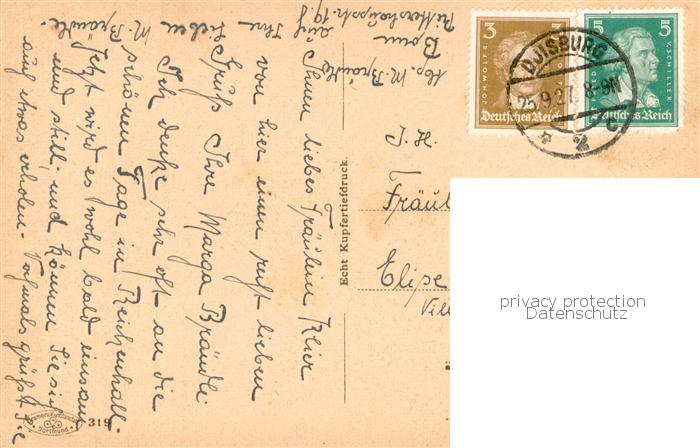 Ihnen liebes Fräulein Klier
von hier einen recht lieben
Gruß Ihre Marga Brändle.
Ich denke sehr oft an die
schönen Tage in Reichenhall.
Jetzt wird es wohl bald einsam
und still, und können Sie sich
auch etwas erholen. Vielmals grüßt Sie
auf Ihr
lieben
M. Brändle.
Abs. M. Brändle
Bonn
Echt Kupfertiefdruck.
319
Dortmund
3 3
JOH. WOLFG.
Deutsches Reich
5 5
FRIED V. SCHILLER
Deutsches Reich
DUISBURG
25.9.27. 8-9N
* 2 c
Fräul
Elise
Vill
privacy protection
Datenschutz